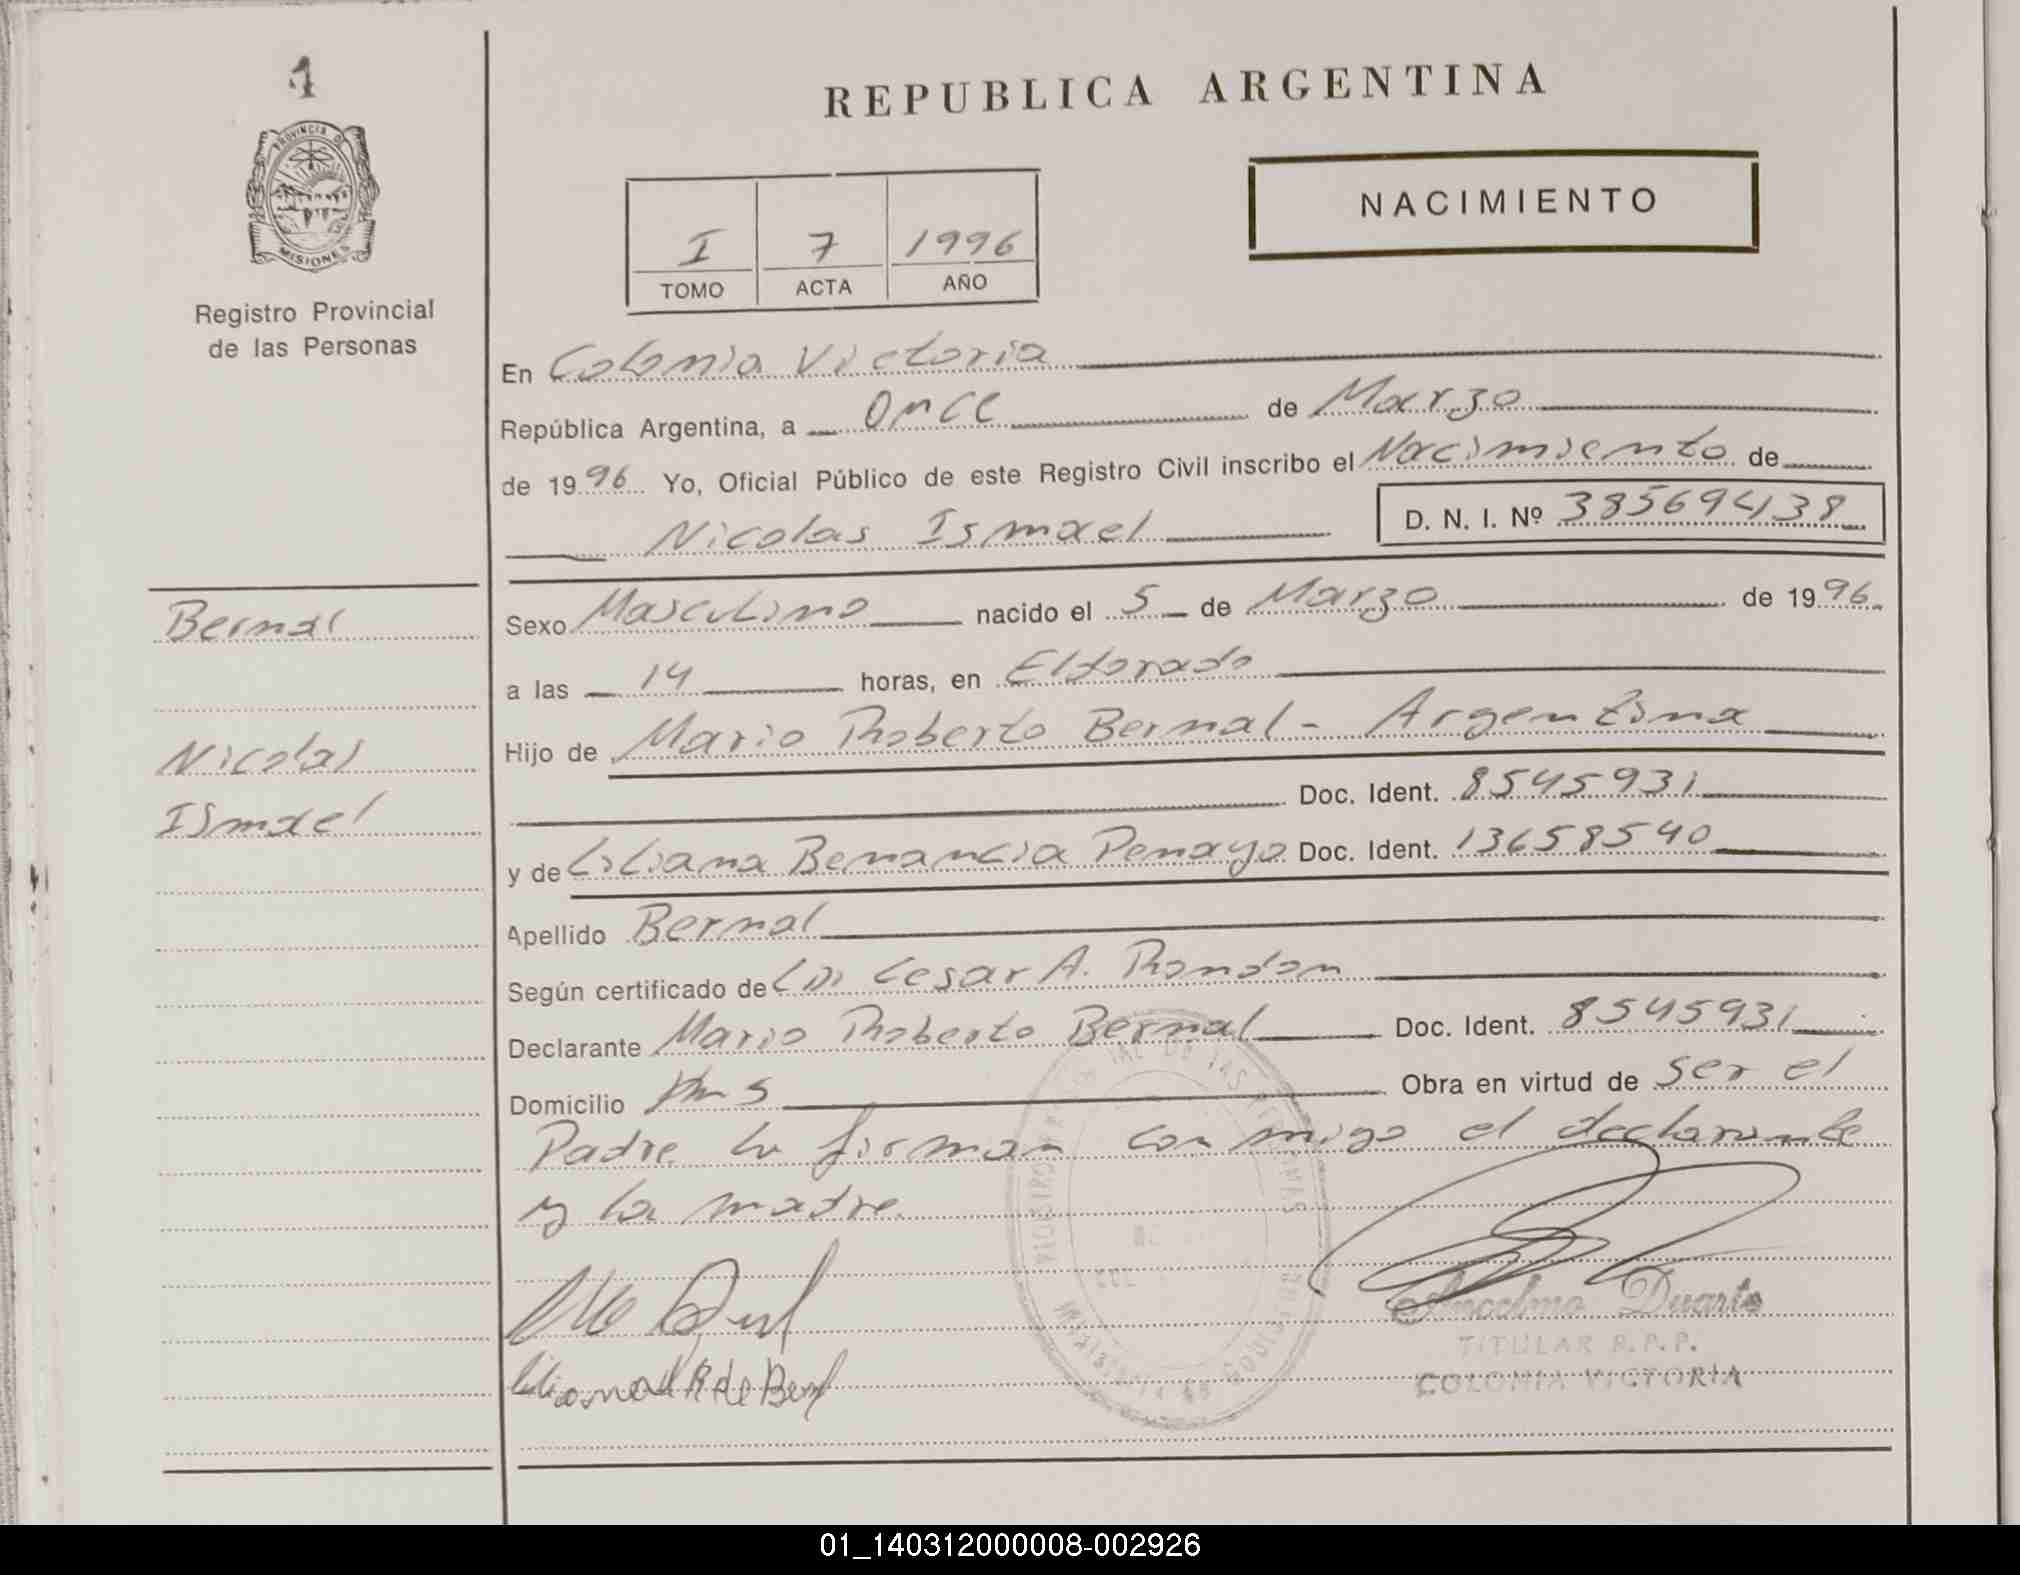 1
PROVINCIA D
MISIONES
Registro Provincial
de las Personas
REPUBLICA ARGENTINA
NACIMIENTO
I 7 1996
TOMO ACTA AÑO
En Colonia Victoria
República Argentina, a Once de Marzo
de 1996 Yo, Oficial Público de este Registro Civil inscribo el Nacimiento de
Nicolas Ismael D. N. I. Nº 38569438
Bernal
Nicolas
Ismael
Sexo Masculino nacido el 5 de Marzo de 1996
a las 14 horas, en Eldorado
Hijo de Mario Roberto Bernal - Argentina
Doc. Ident. 8545931
y de Liliana Benancia Penayo Doc. Ident. 13658540
Apellido Bernal
Según certificado de Cesar A. Rondon
Declarante Mario Roberto Bernal Doc. Ident. 8545931
Domicilio Km 5 Obra en virtud de ser el
Padre la firman con migo el declarante
y la madre.
Anselmo Duarte
TITULAR R.P.P.
COLONIA VICTORIA
01_140312000008-002926